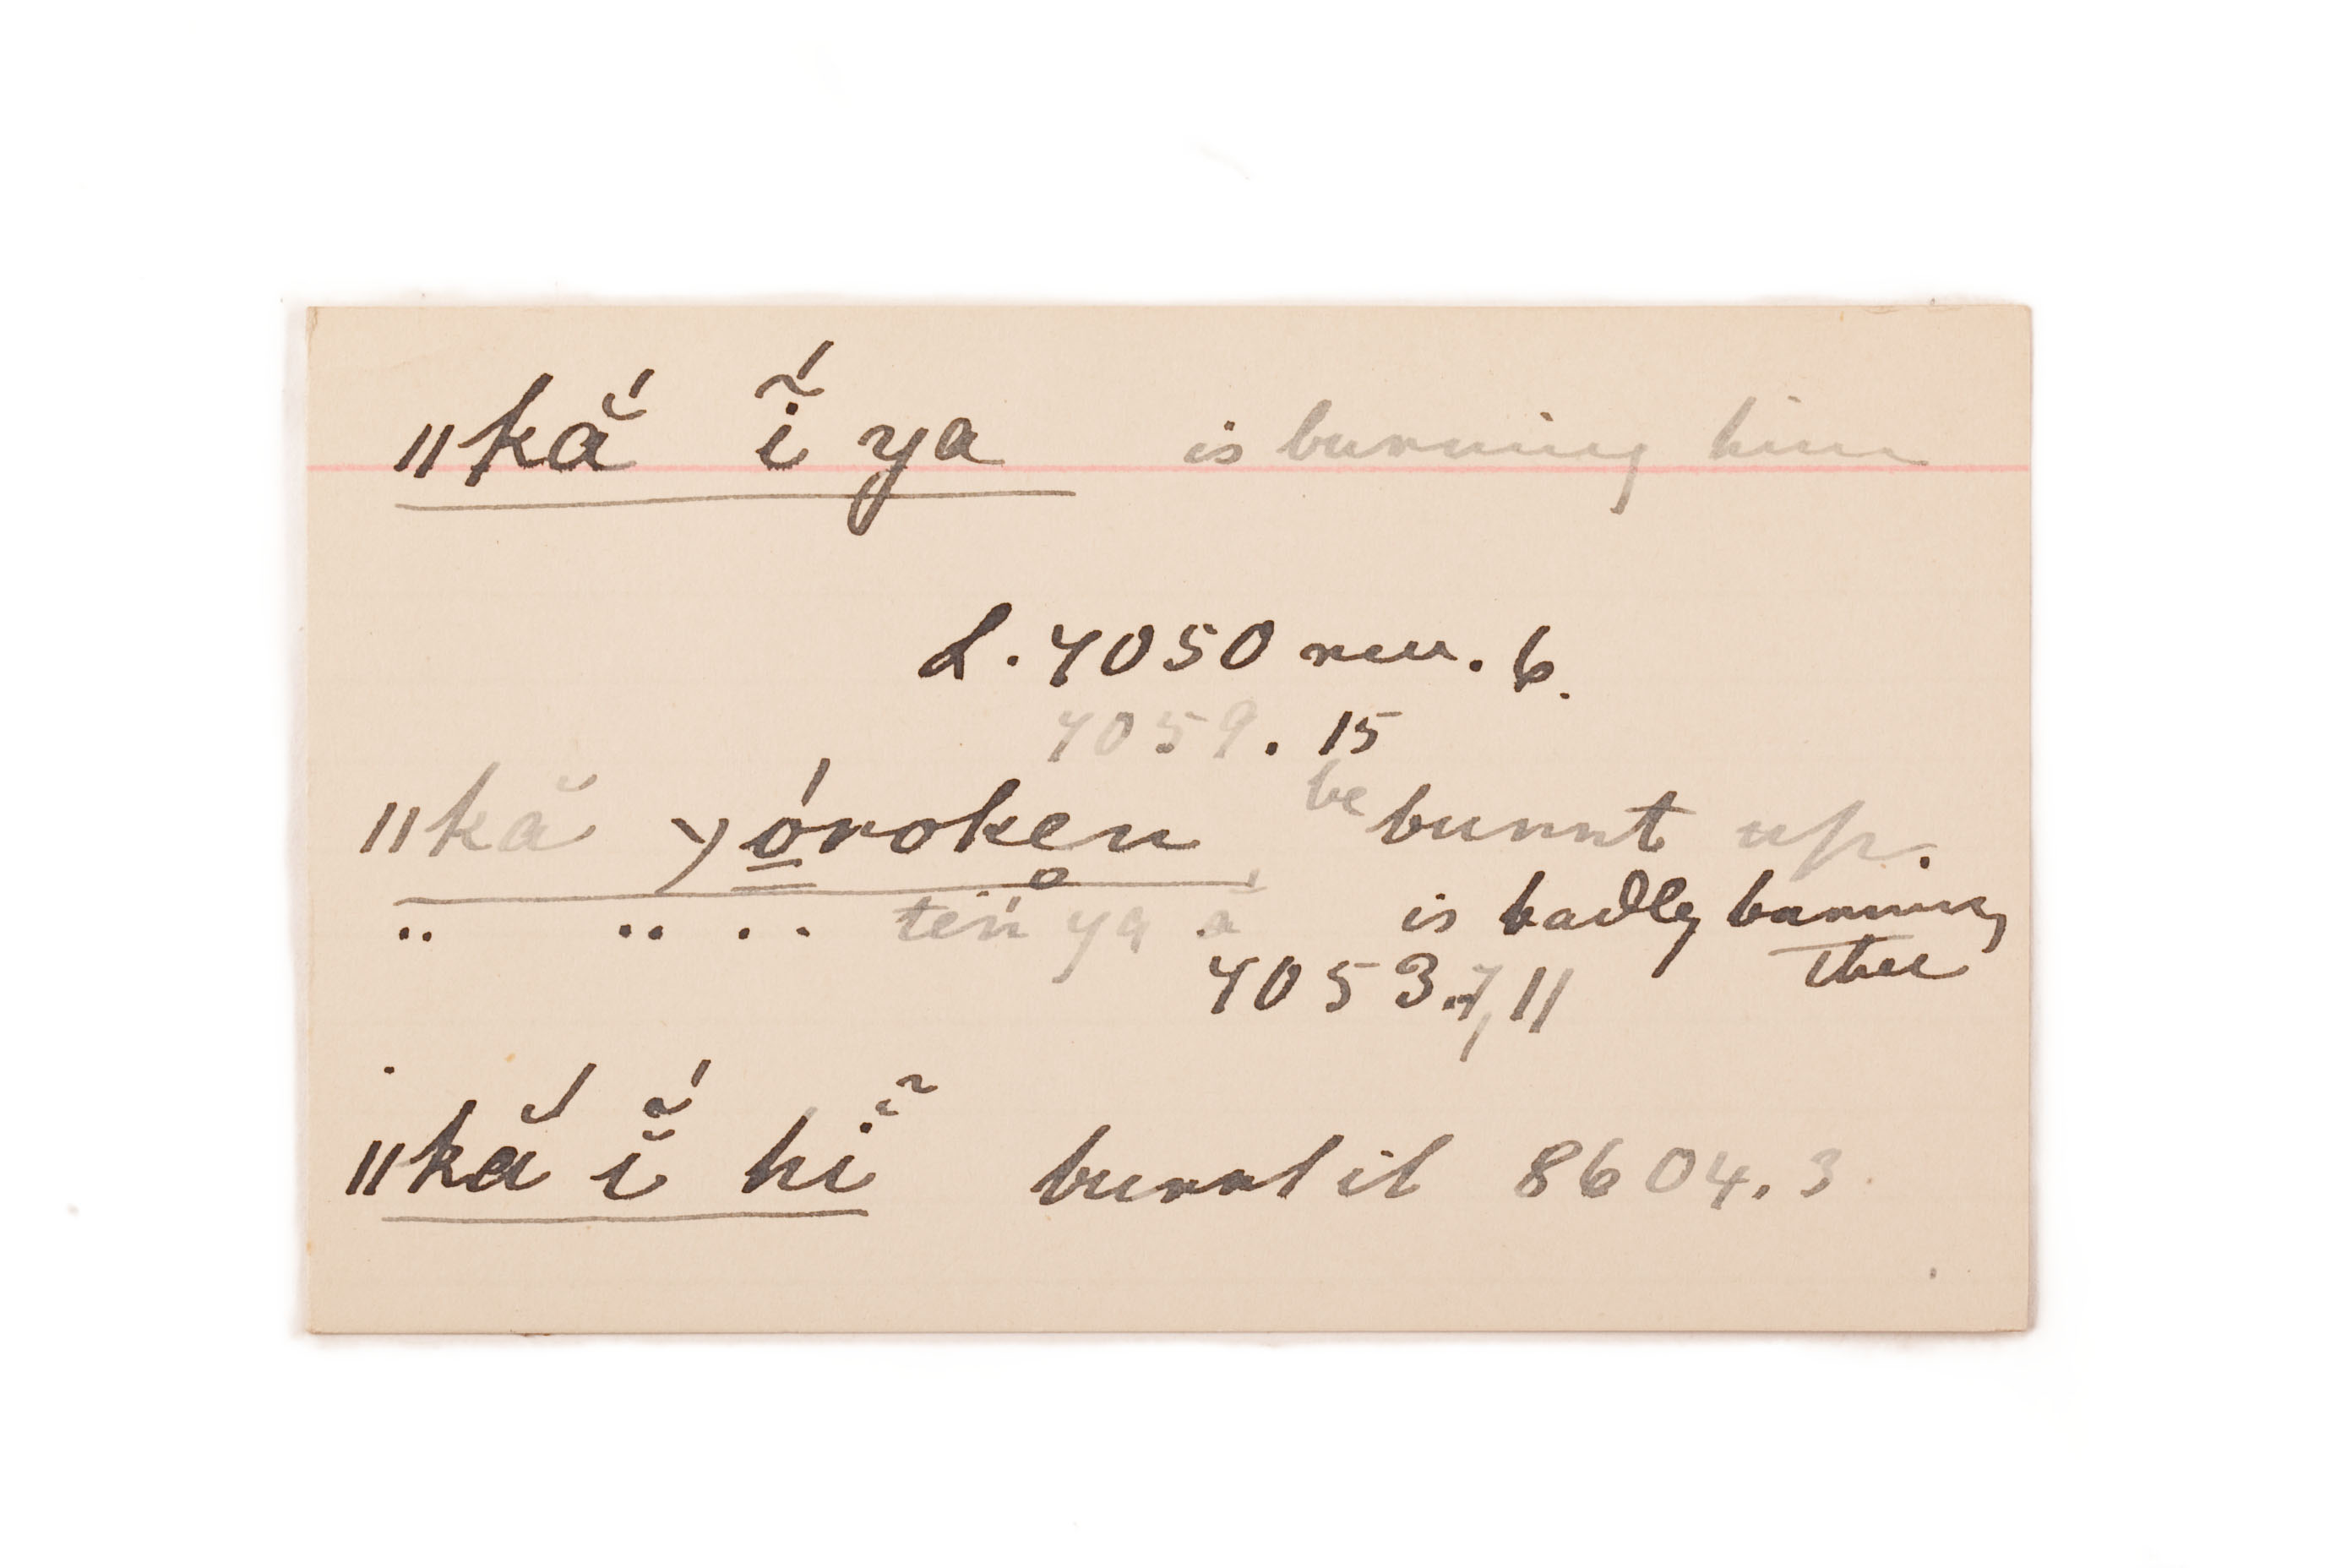 ǁkắ ĩ́ ya is burning him
L. 4050 rev. 6.
4059. 15
ǁkă yó̳roken be burnt up.
.. .. .. teń ya ă is badly burning
thee
4053.7,11
ǁkắ ĭ́ hĩ̆ burnt it 8604.3